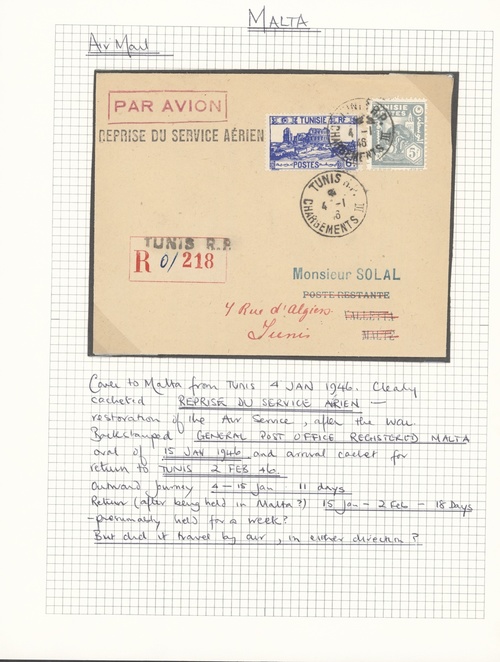 MALTA
Air Mail
PAR AVION
REPRISE DU SERVICE AÉRIEN
TUNISIE RF
POSTES
TUNISIE
POSTES
5F
TUNIS R.P.
4 -1
46
CHARGEMENTS
TUNIS R.P.
4 -1
CHARGEMENTS
TUNIS R.P.
R 0/ 218
Monsieur SOLAL
POSTE RESTANTE
VALLETTA
MALTE
4 Rue d'Algier
Tunis
Cover to Malta from TUNIS 4 JAN 1946. Clearly
cacheted REPRISE DU SERVICE ARIEN —
restoration of the Air Service, after the war.
Backstamped GENERAL POST OFFICE REGISTERED MALTA
oval of 15 JAN 1946 and arrival cachet for
return to TUNIS 2 FEB 46.
Outward journey 4 - 15 Jan 11 days
Return (after being held in Malta?) 15 Jan - 2 Feb - 18 Days
- presumably held for a week?
But did it travel by air, in either direction?